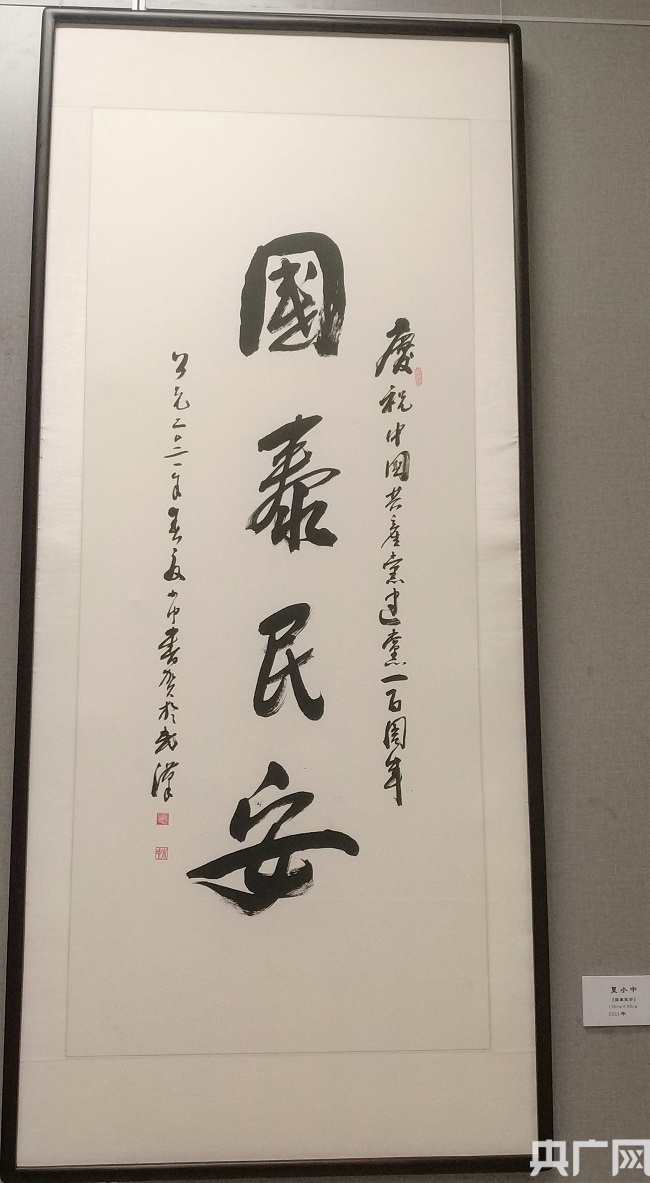 慶祝中国共產黨建黨一百周年
國泰民安
公元二〇二一年春夏小中書賀於武漢
夏小中
《国泰民安》
2021年
央广网